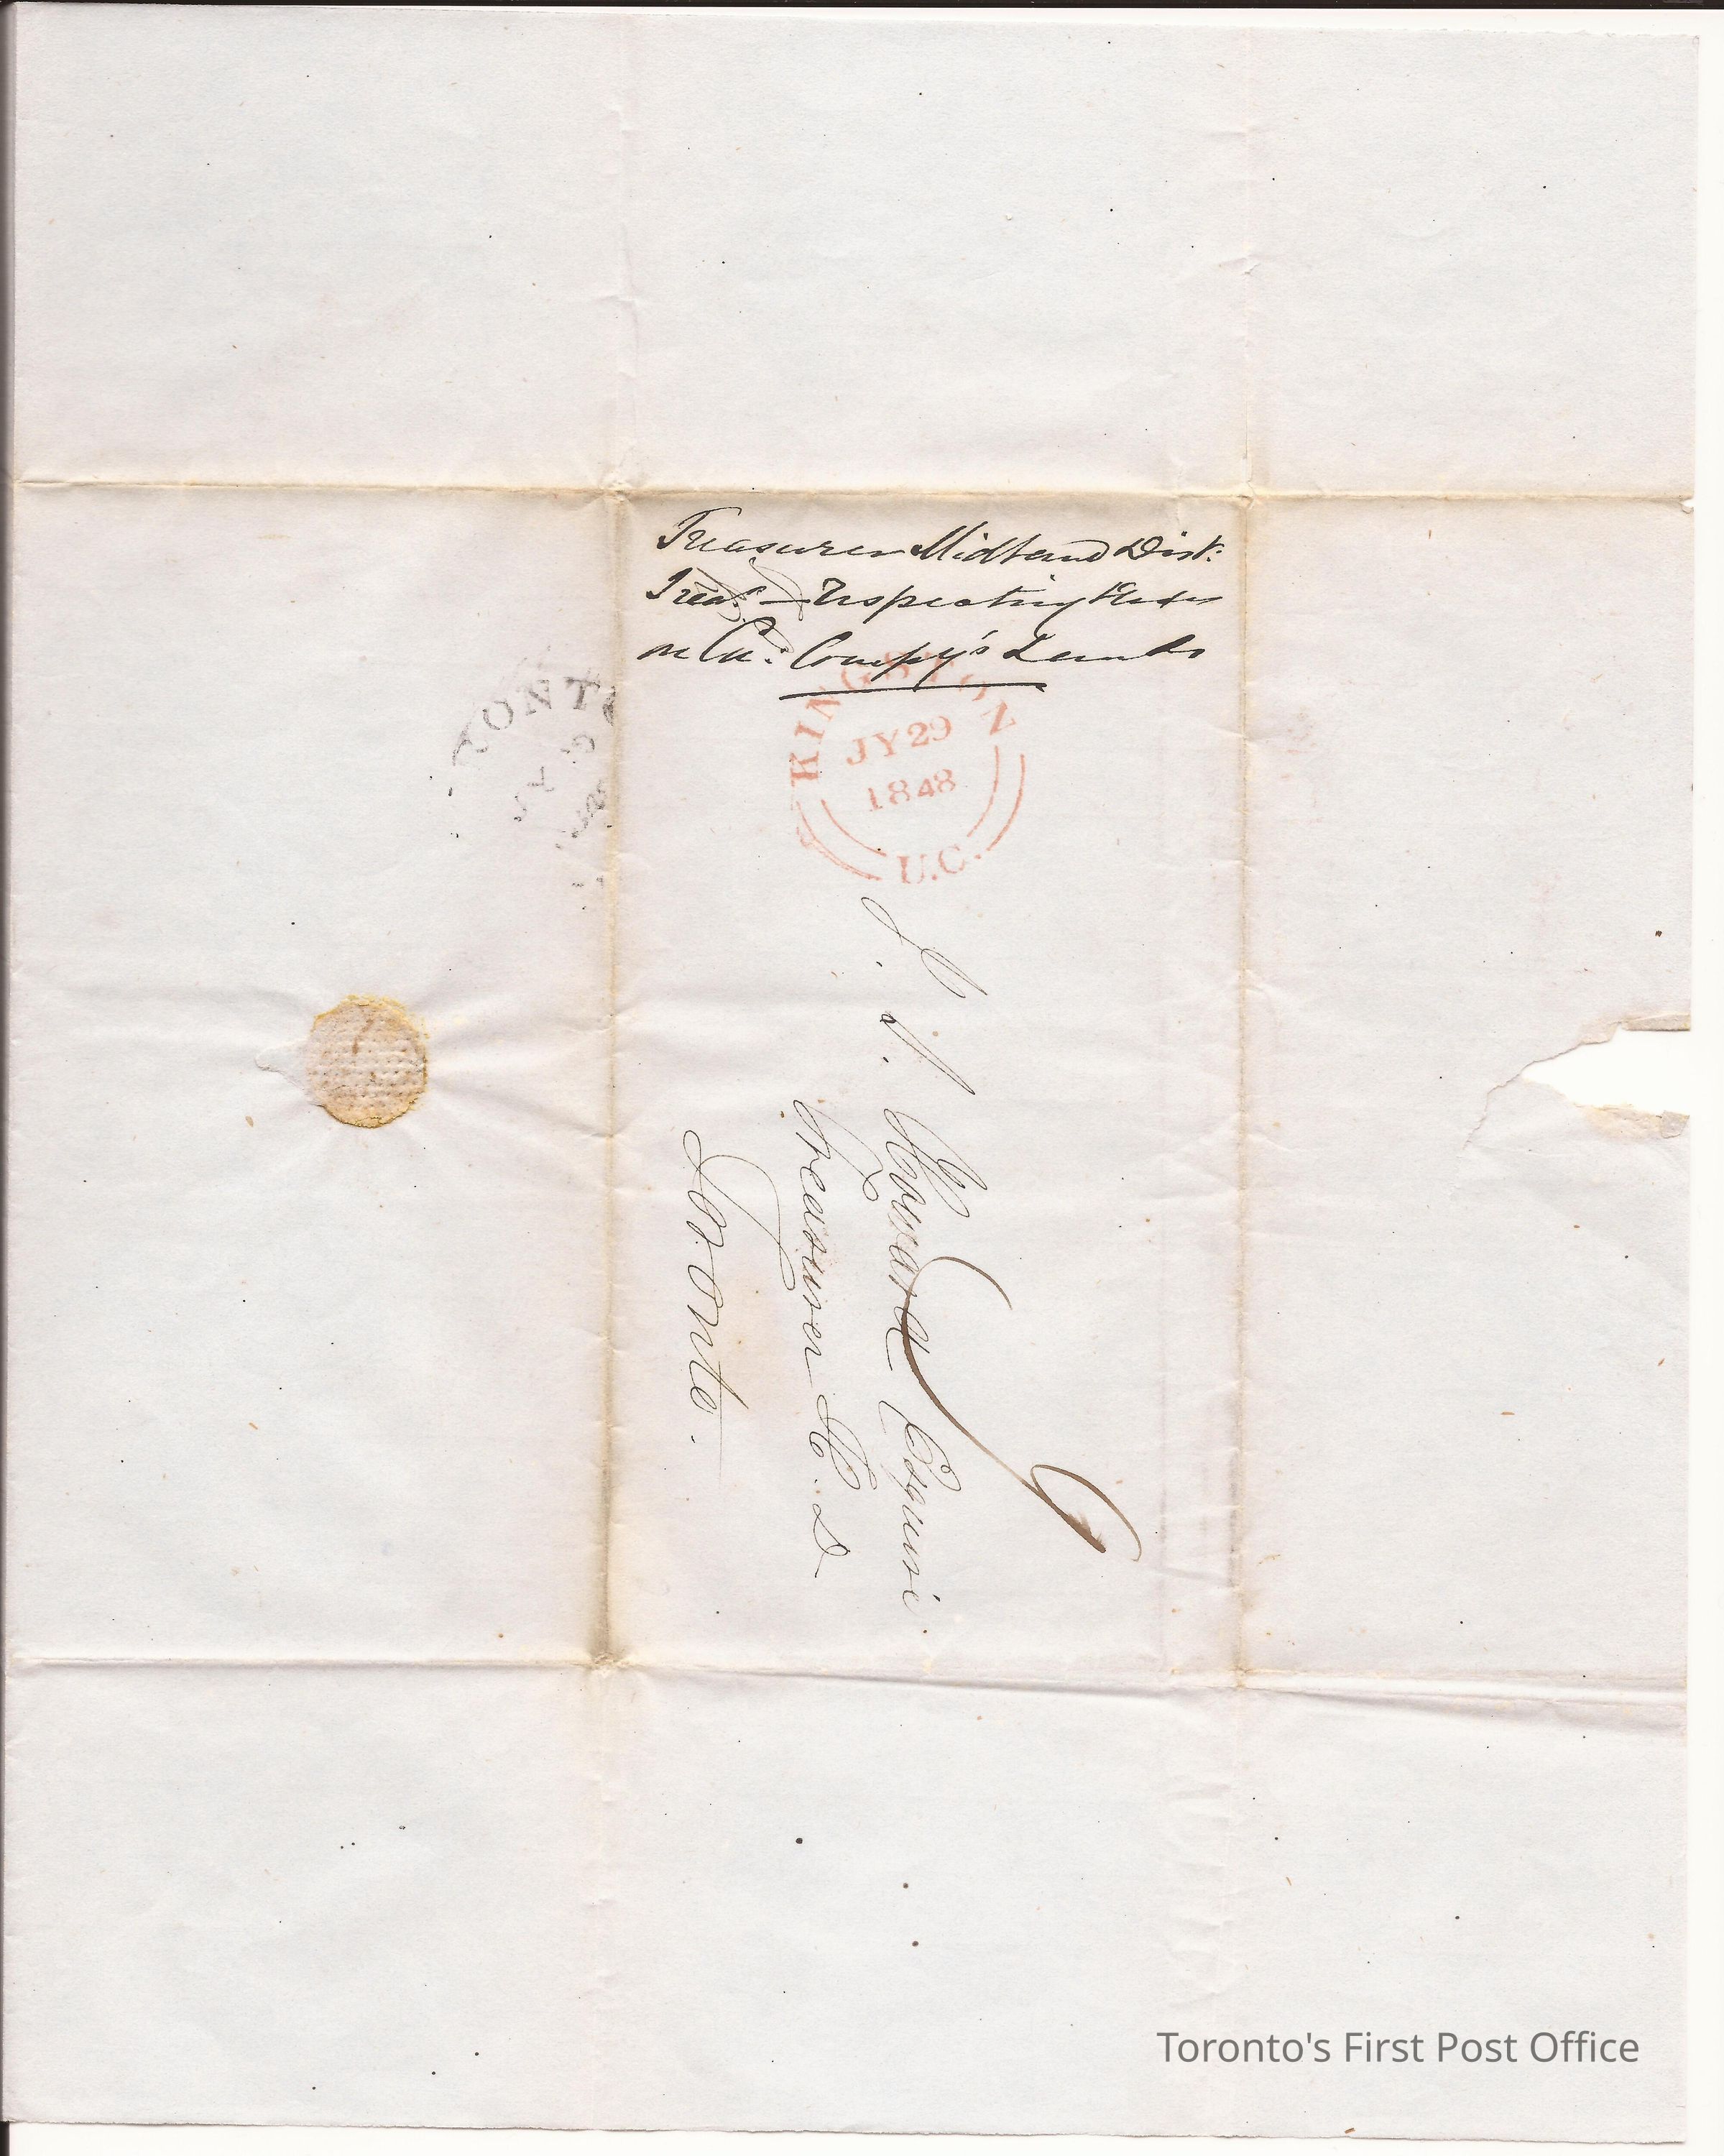 Treasurer Midland Dist:
Treas: — Respecting Taxes
on Ca: Compy's Lands
KINGSTON
JY 29
1848
U.C.
RONTO
JY
J. S. Howard Esquire.
Treasurer H. D
Toronto.
9
Toronto's First Post Office